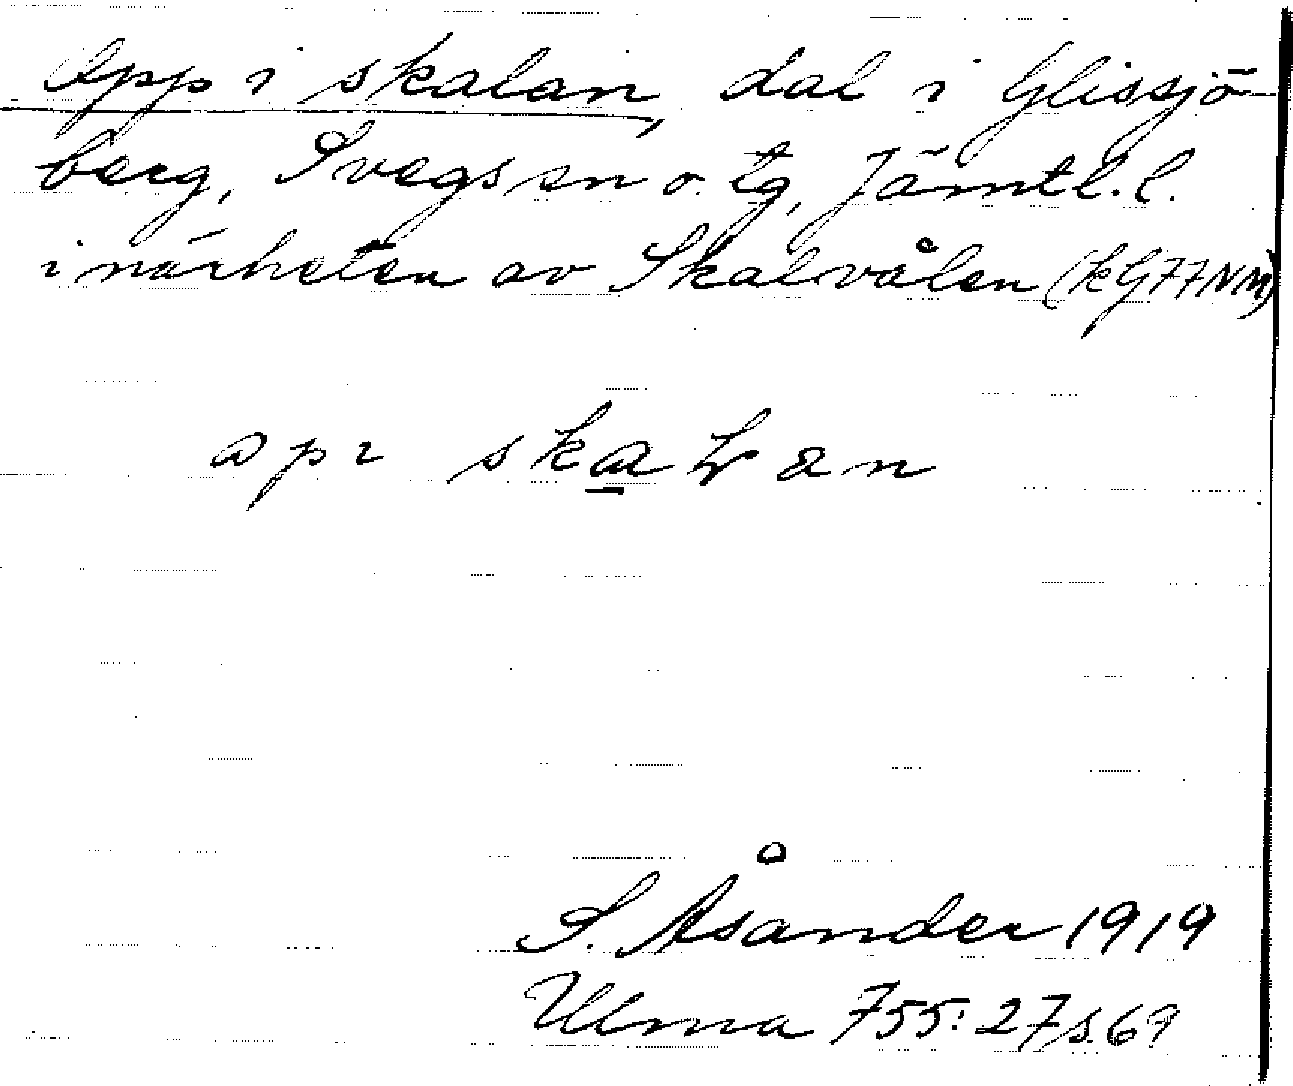 Opp i skalan, dal i Glissjö-
berg, Svegs sn o. tg, Jämtl. l.
i närheten av Skalvålen (kG77NM)
opı skaɫan
S. Åsander 1919
Ulma 755:27 s. 69